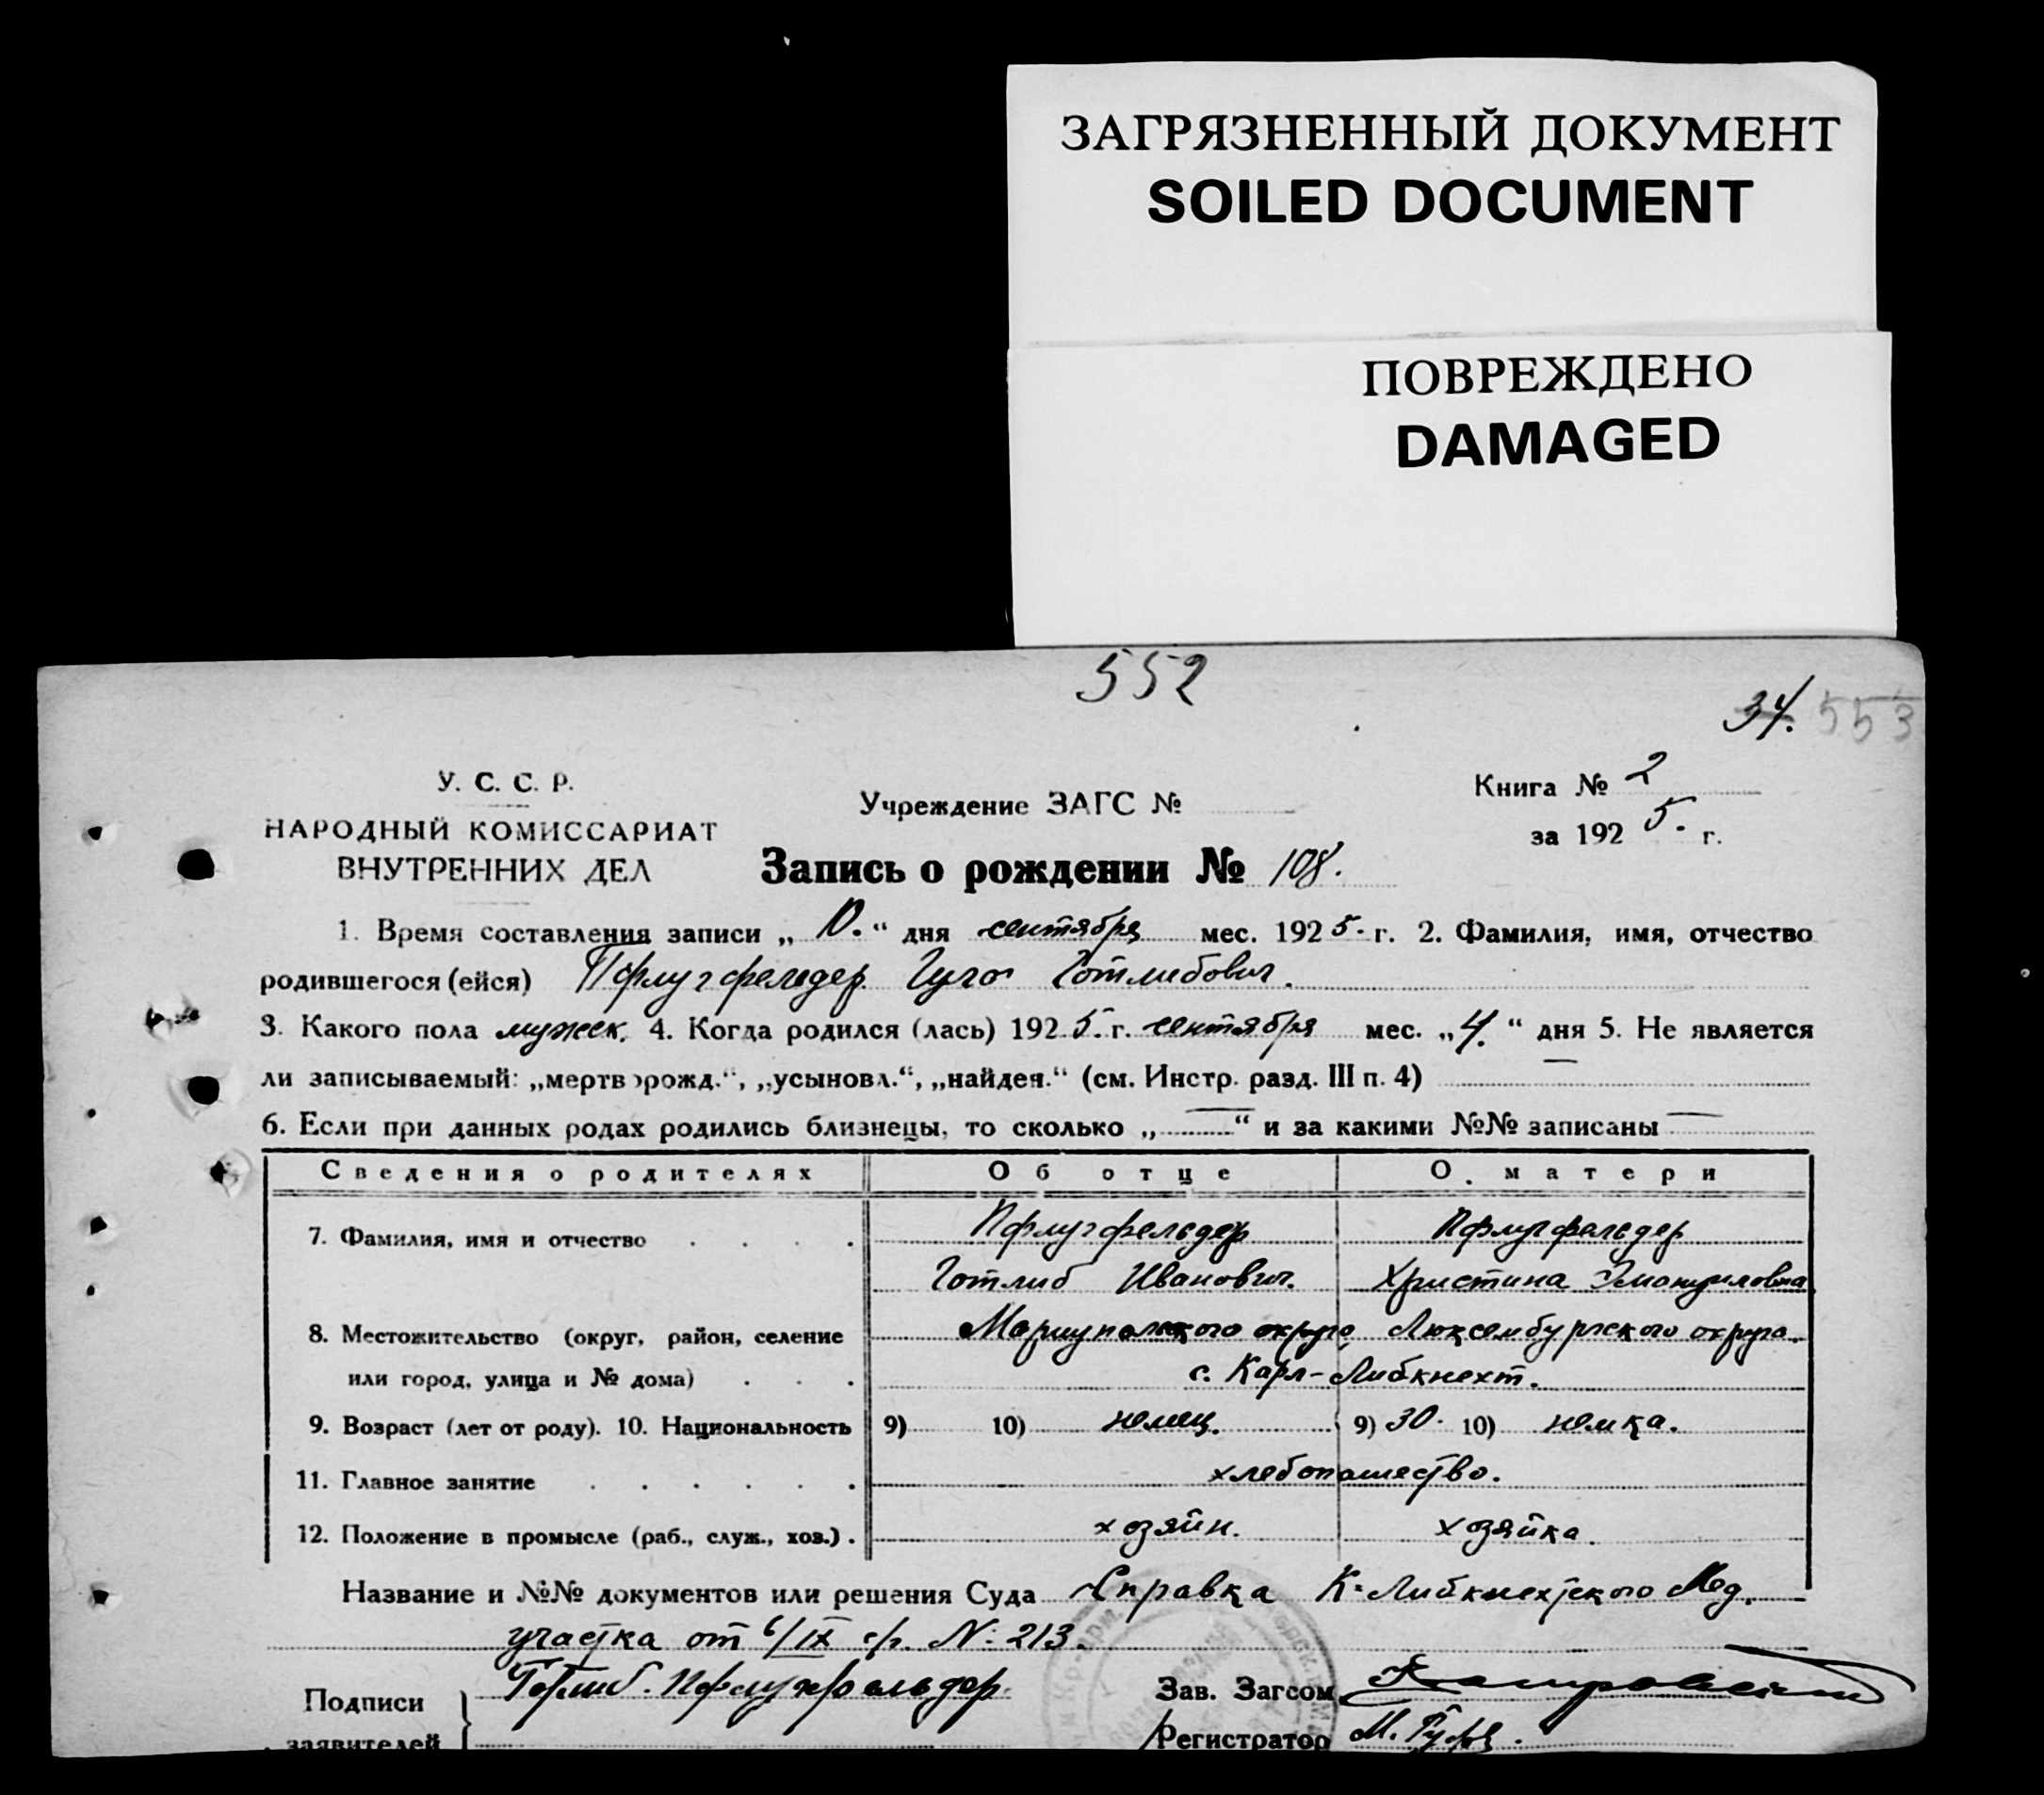 ЗАГРЯЗНЕННЫЙ ДОКУМЕНТ
SOILED DOCUMENT
ПОВРЕЖДЕНО
DAMAGED
552
34. 553
У. С. С. Р.
НАРОДНЫЙ КОМИССАРИАТ
ВНУТРЕННИХ ДЕЛ
Учреждение ЗАГС №
Книга № 2
за 1925. г.
Запись о рождении № 108.
1. Время составления записи „ 10. “ дня сентября мес. 1925. г. 2. Фамилия, имя, отчество
родившегося (ейся) Пфлугфельдер Гуго Готлибович.
3. Какого пола мужск. 4. Когда родился (лась) 1925. г. сентября мес. „4.“ дня 5. Не является
ли записываемый: „мертворожд.“, „усыновл.“, „найден.“ (см. Инстр. разд. III п. 4) —
6. Если при данных родах родились близнецы, то сколько „—“ и за какими №№ записаны —
Сведения о родителях Об отце О матери
7. Фамилия, имя и отчество . . . . Пфлугфельдер Пфлугфельдер
Готлиб Иванович. Христина Эмануиловна
8. Местожительство (округ, район, селение Мариупольского округа, Люксембургского округа.
или город, улица и № дома) . . . с. Карл-Либкнехт.
9. Возраст (лет от роду). 10. Национальность 9) 10) немец. 9) 30. 10) немка.
11. Главное занятие . . . . . . хлебопашество.
12. Положение в промысле (раб., служ., хоз.) . хозяин. хозяйка.
Название и №№ документов или решения Суда Справка К-Либкнехтского Мед.
участка от 6/IX с/г. N: 213.
Подписи Готлиб. Пфлугфельдер Зав. Загсом
заявителей Регистратор М.